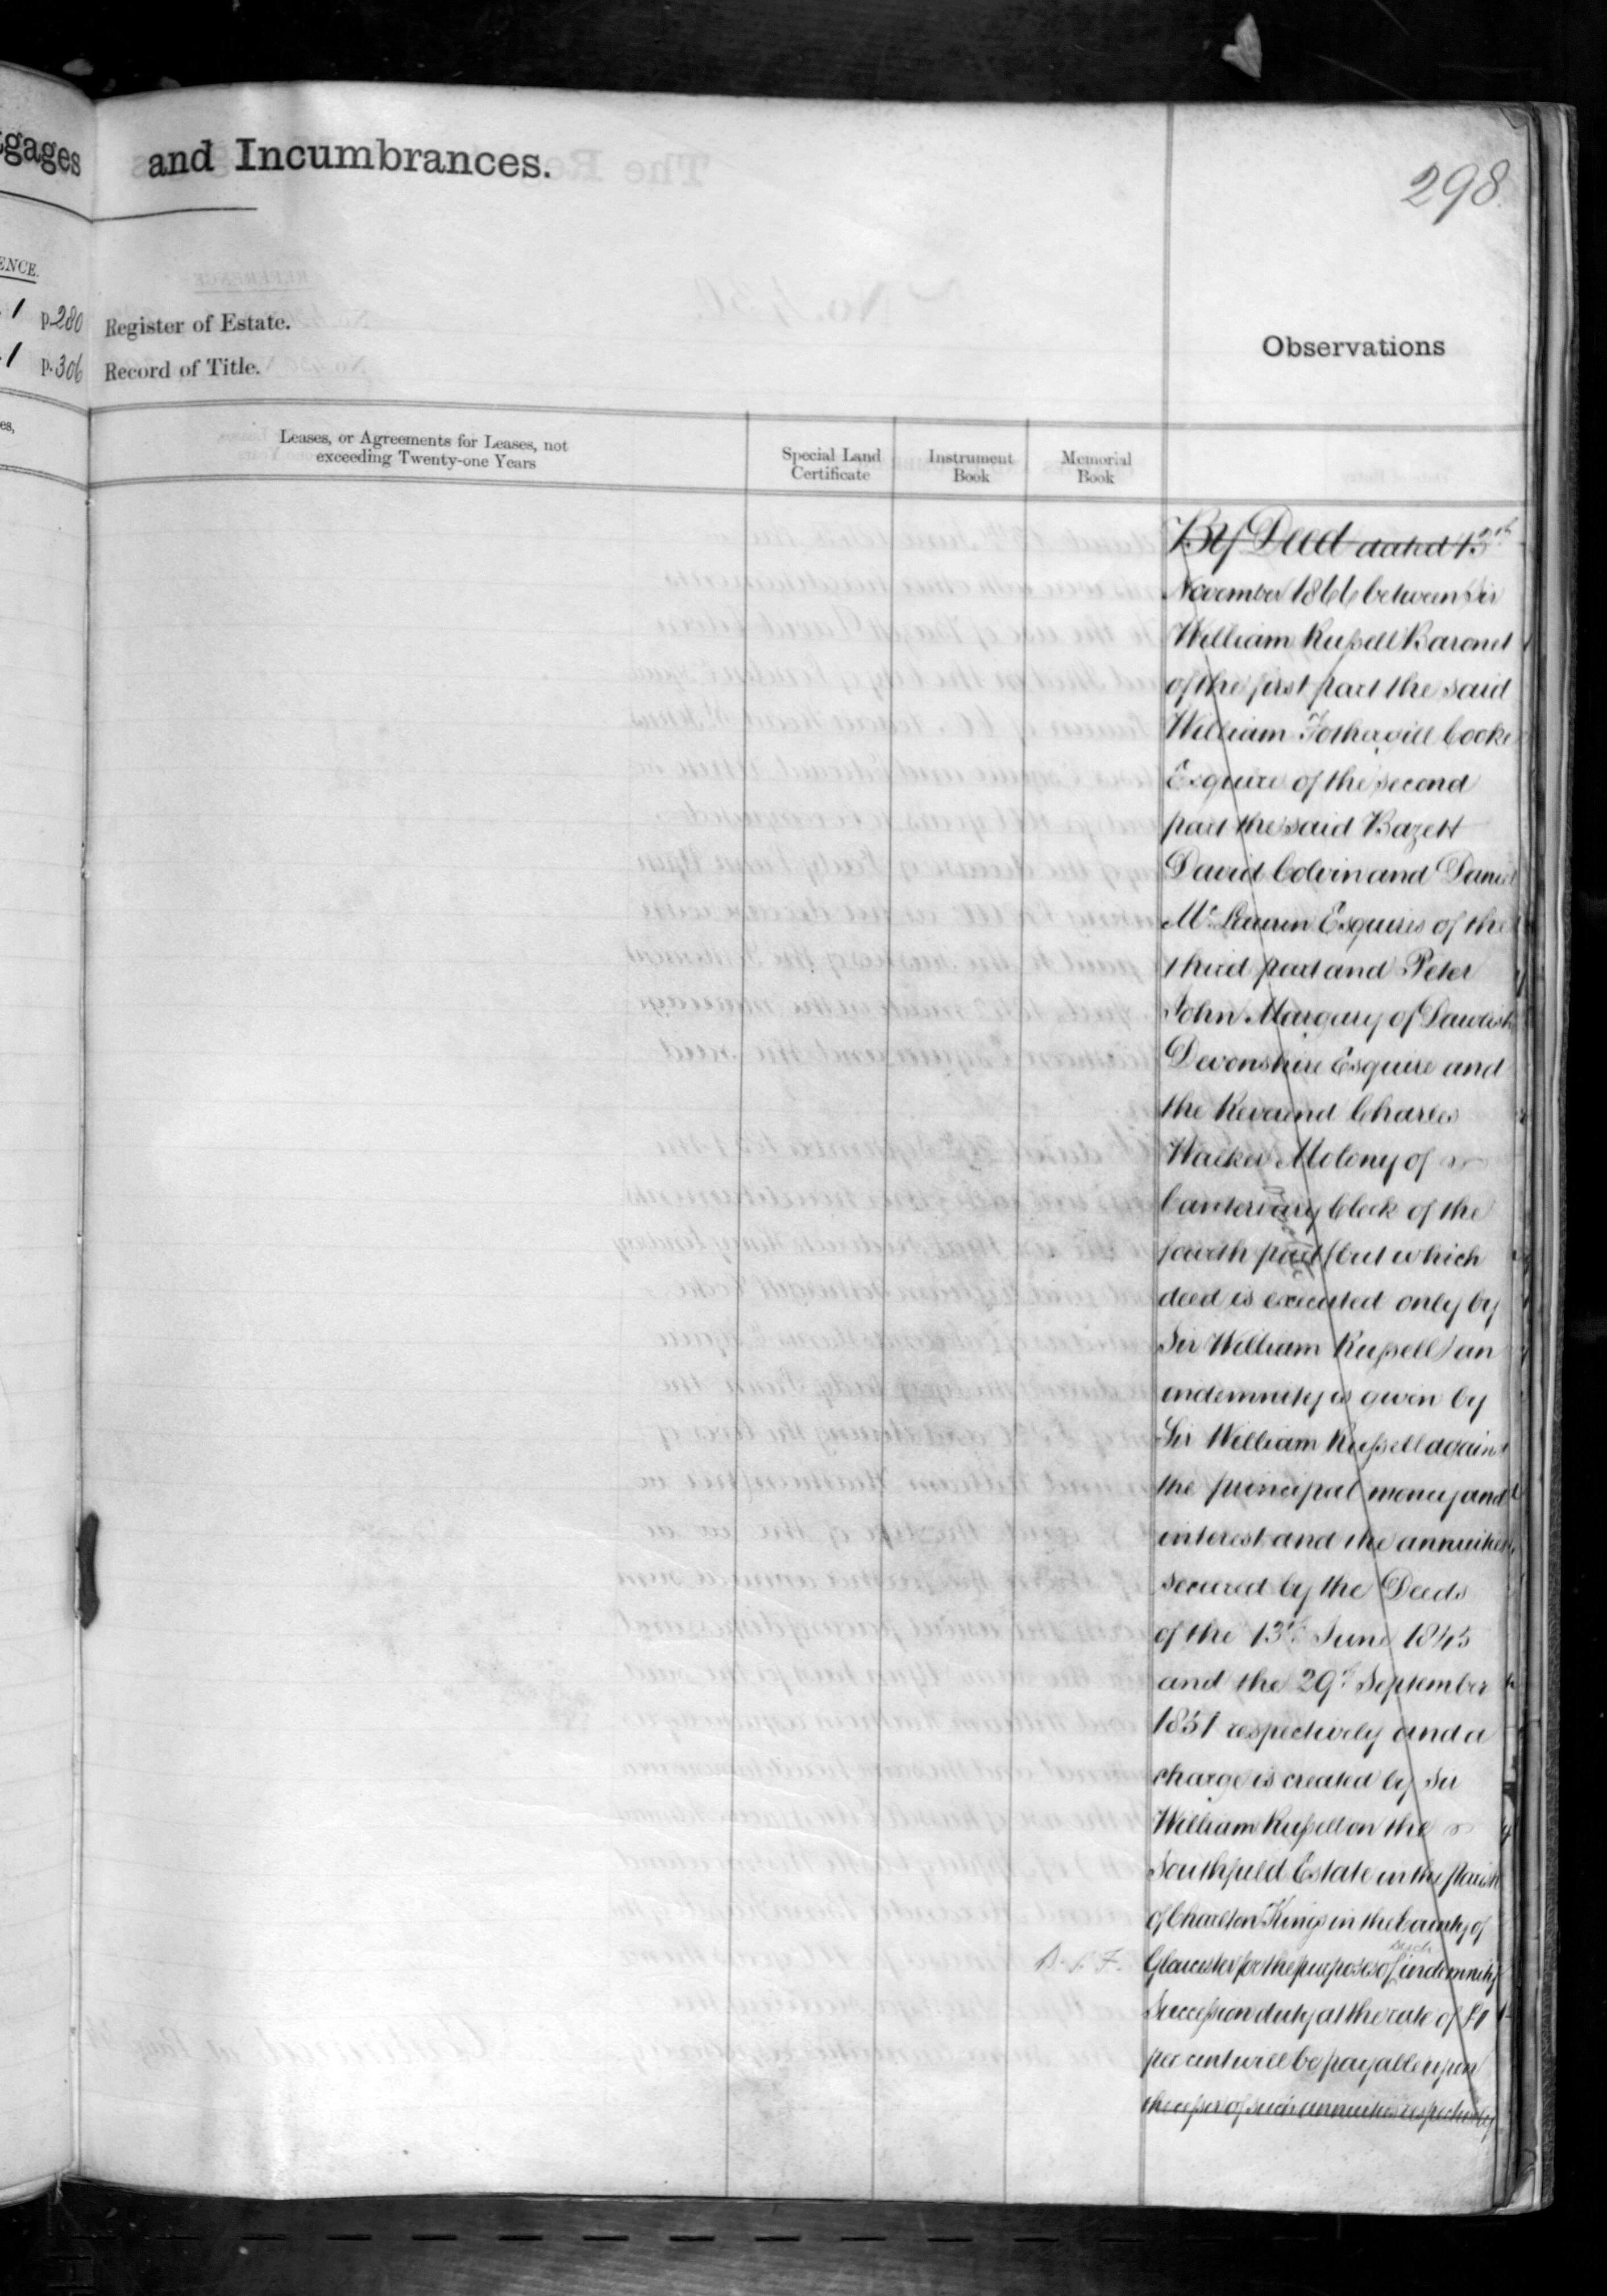 tgages and Incumbrances.
298.
ENCE.
1 p.280 Register of Estate.
1 p.306 Record of Title.
Observations
es,
Leases, or Agreements for Leases, not
exceeding Twenty-one Years
Special Land
Certificate
Instrument
Book
Memorial
Book
By Deed dated 13th
November 1866 between Sir
William Russell Baronet
of the first part the said
William Fothergill Cooke
Esquire of the second
part the said Bazett
David Colvin and Daniel
McLaurin Esquires of the
third part and Peter
John Margary of Dawlish
Devonshire Esquire and
the Reverend Charles
Walker Molony of
Canterbury Clerk of the
fourth part (but which
deed is executed only by
Sir William Russell) an
indemnity is given by
Sir William Russell against
the principal money and
interest and the annuities
secured by the Deeds
of the 13th June 1845
and the 29th September
1851 respectively and a
charge is created by Sir
William Russell on the
Southfield Estate in the Parish
of Charlton Kings in the County of
Gloucester for the purposes of such indemnity
Succession duty at the rate of £1
per cent will be payable upon
the cesser of such annuities respectively